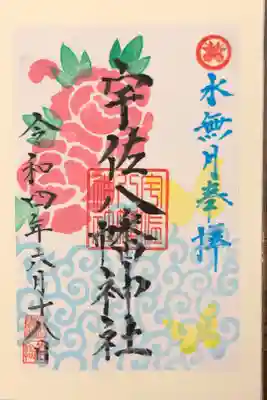 水無月奉拝
宇佐八幡神社
令和四年六月十八日